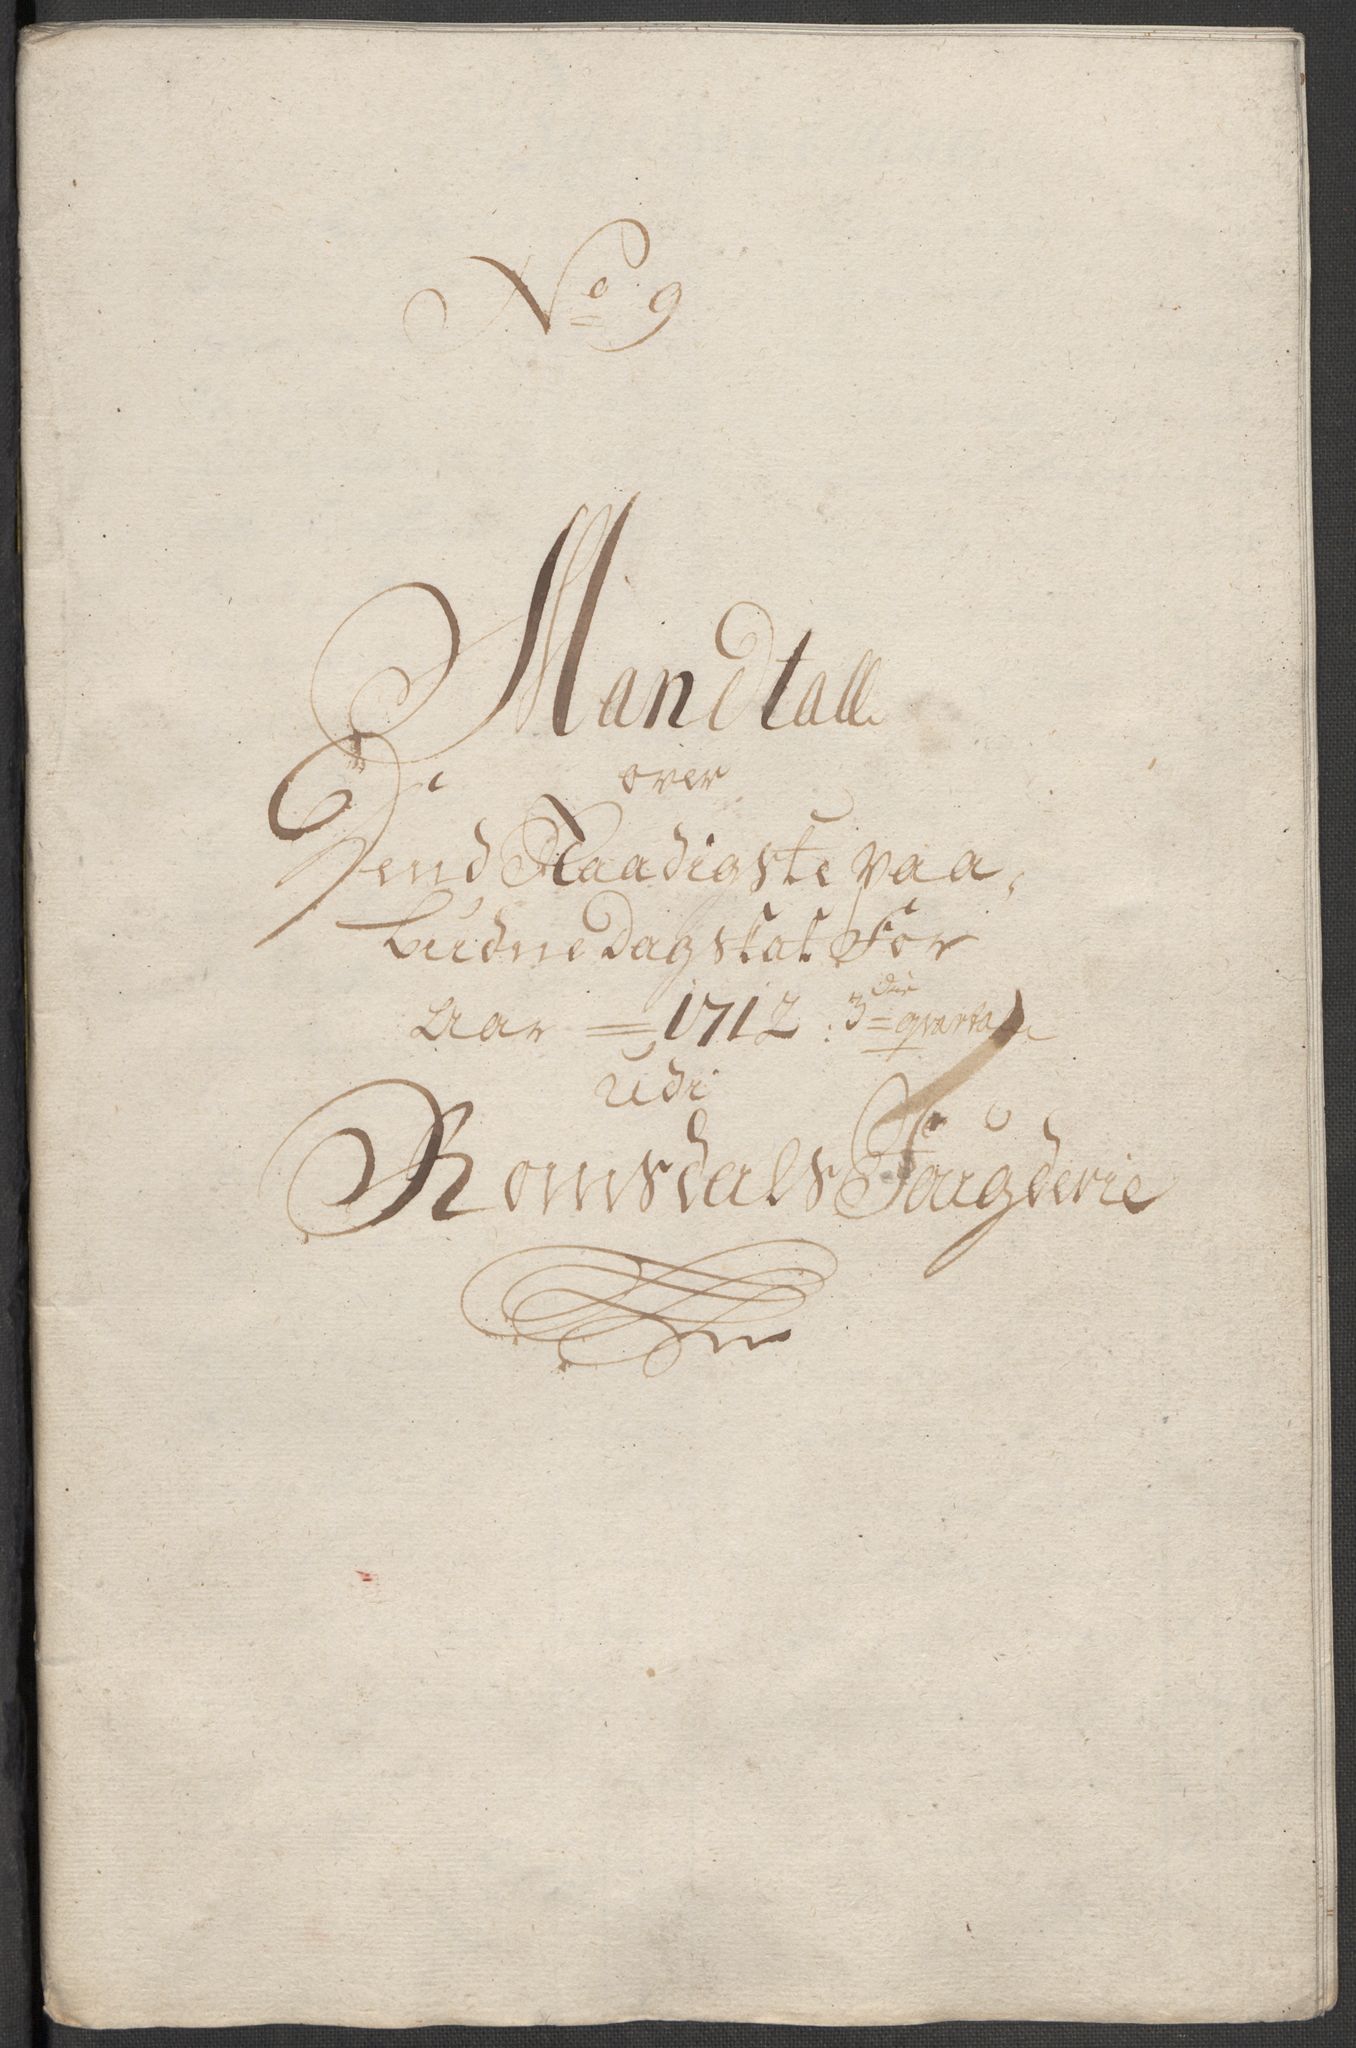 No 9
Mandtall
over
Dend Naadigste paa,
budne Dagskat For
Aar = 1712. 3die qvartal
Udi
Romsdals Fougderie